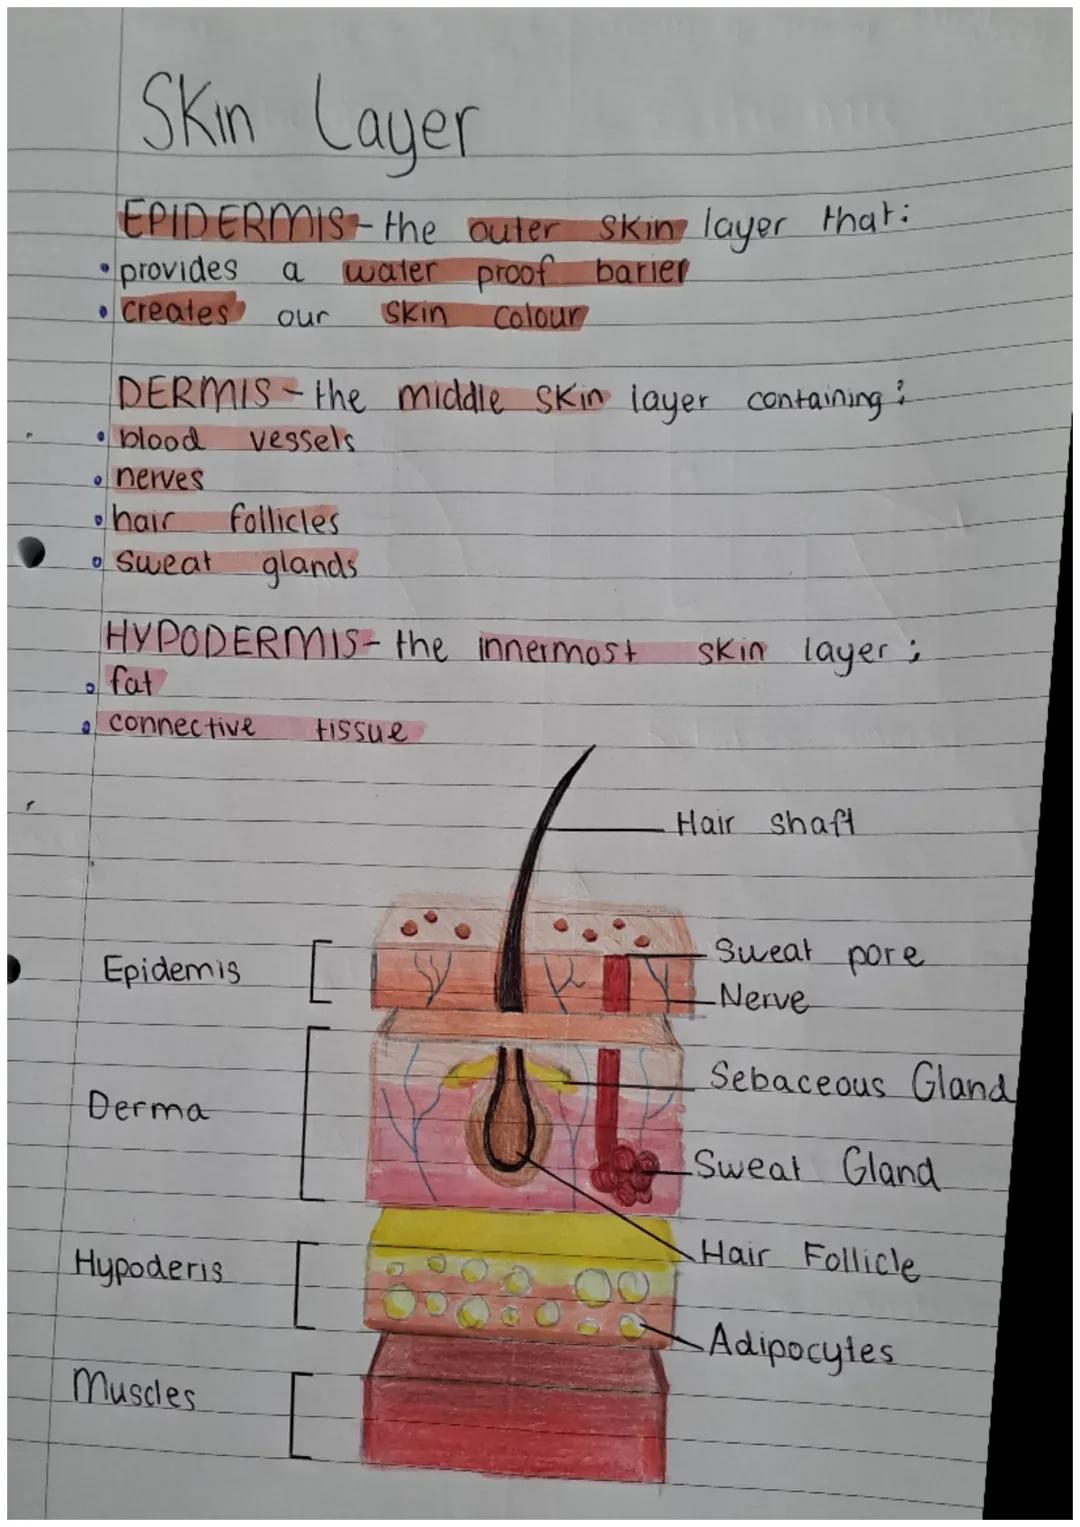 Skin Layer
EPIDERMIS - the outer skin layer that:
• provides a water proof barier
• creates our skin colour
DERMIS - the middle skin layer containing:
• blood vessels
• nerves
• hair follicles
• sweat glands
HYPODERMIS - the innermost skin layer:
• fat
• connective tissue
Hair shaft
Epidemis
Sweat pore
Nerve
Derma
Sebaceous Gland
Sweat Gland
Hypoderis
Hair Follicle
Adipocytes
Muscles